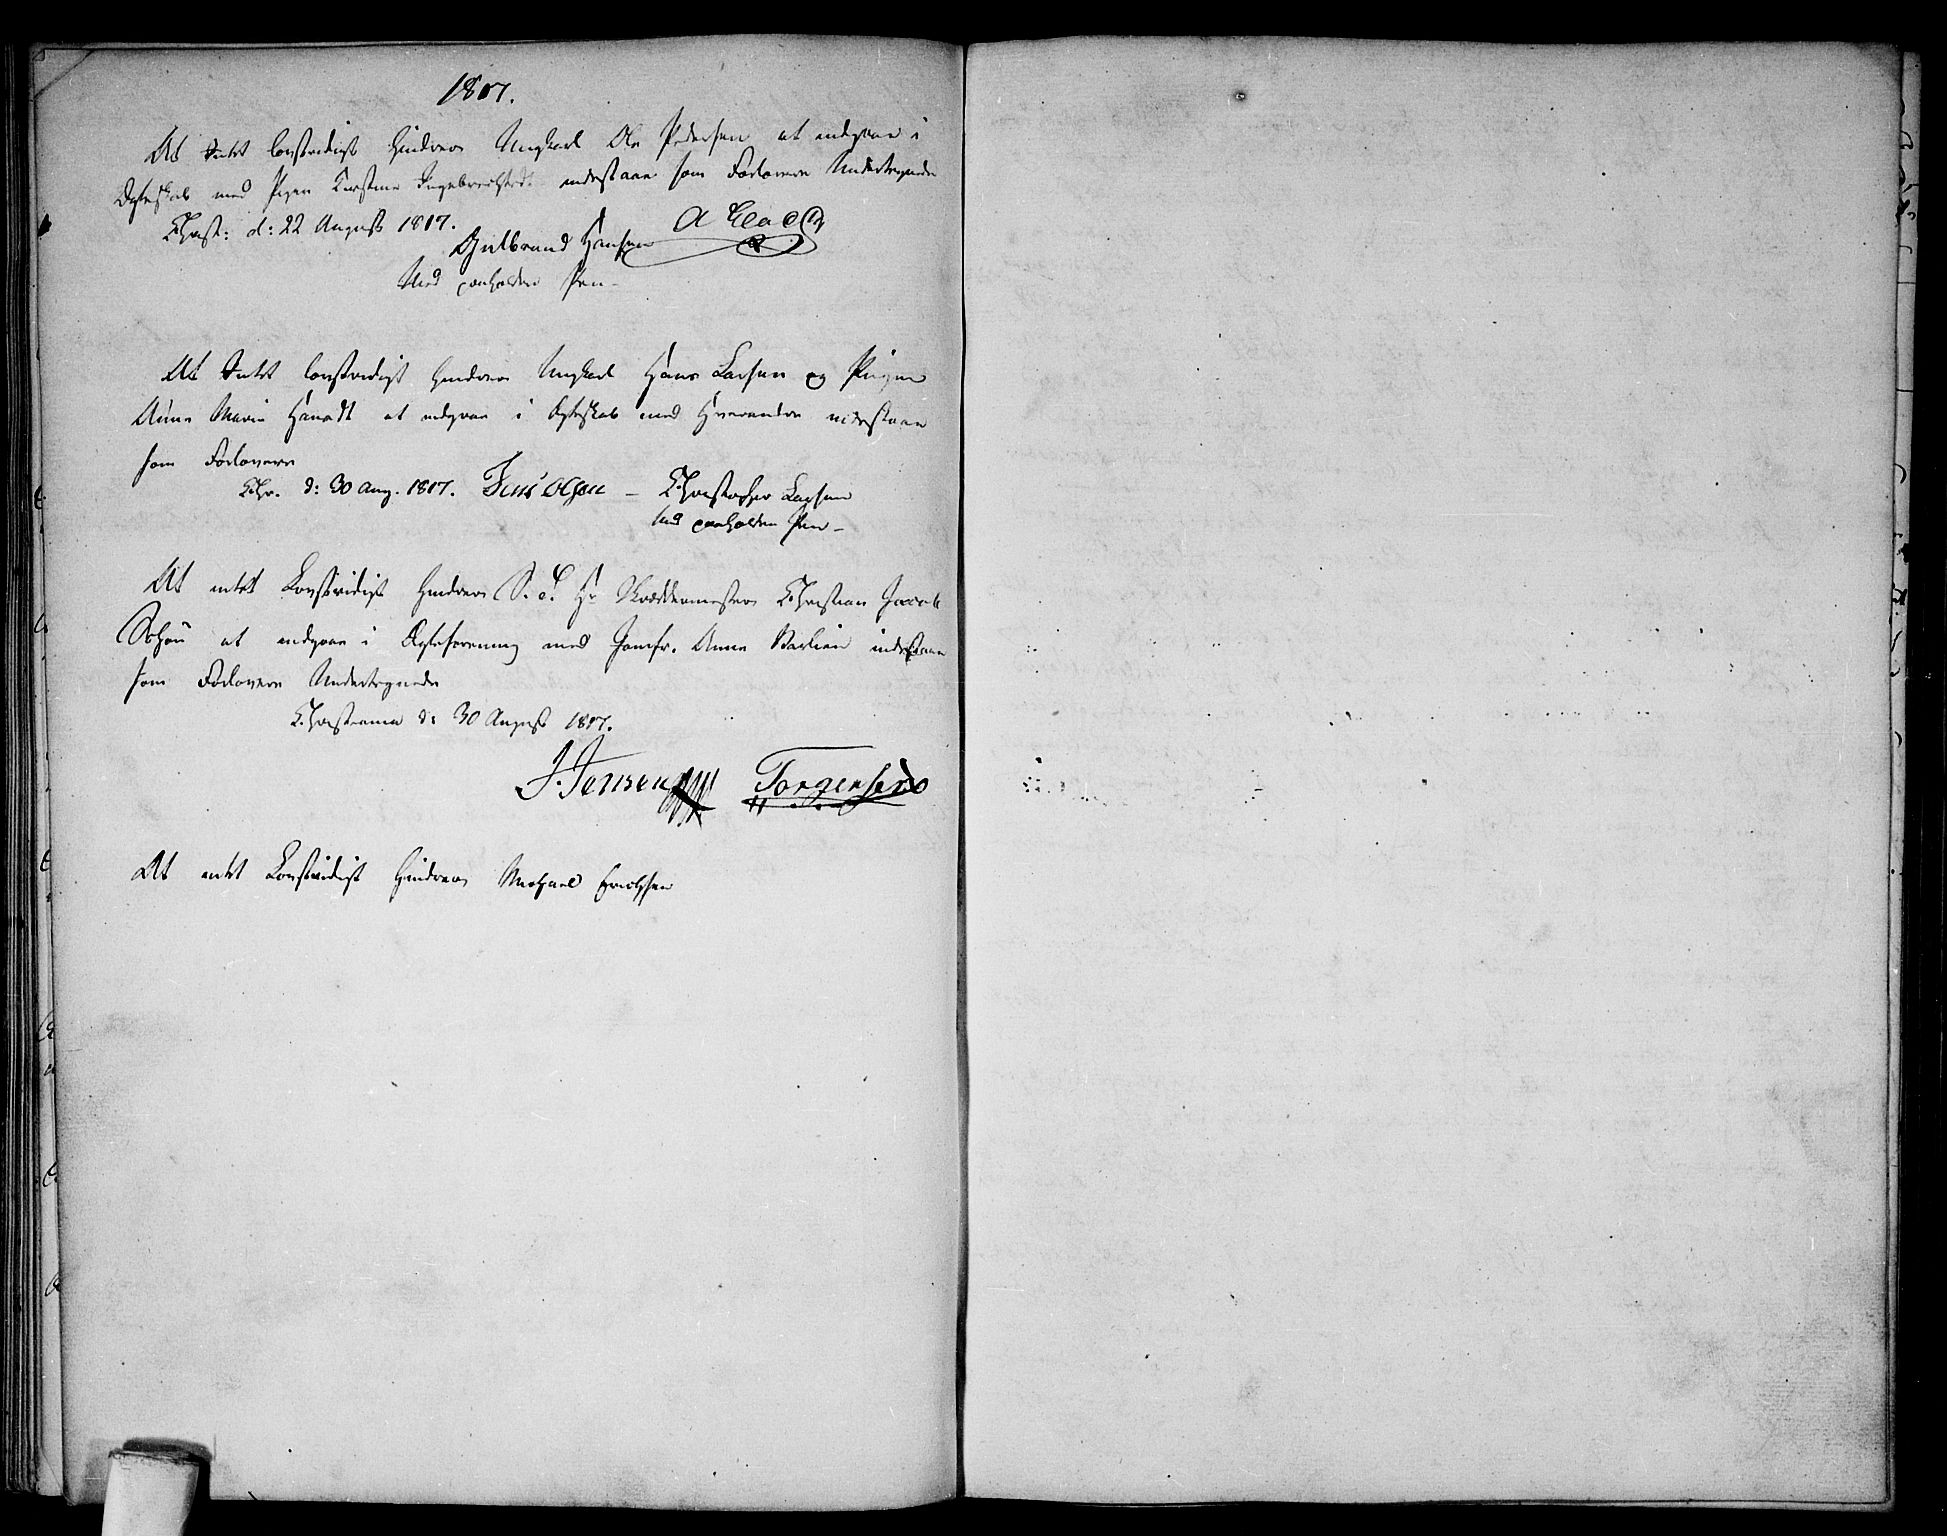 1817.
At Intet lovstridigt hindrer Ungkarl Ole Pedersen at indgaae i
Ægteskab med Pigen Kirstine Ingebrechtsd. indestaae som Forlovere Undertegnede
Christ: d: 22 August 1817.
Gulbrand Hansen
Med paaholden Pen -
At Intet lovstridigt hindrer Ungkarl Hans Larsen og Pigen
Anne Marie Hansdt at indgaae i Ægteskab med Hverandre indestaae
som Forlovere
Chr. d: 30 Aug. 1817. Jens Olsen - Christopher Larsen
Med paaholden Pen -
At intet Lovstridigt hindrer S. T. Hr Skræddermester Christian Jacob
Schou at indgaae i Ægteforening med Jomfr. Anne Barlien indestaae
som Forlovere Undertegnede
Christiania d: 30 August 1817.
J. Jensen Torgersen
At intet Lovstridigt hindrer Michael Erichsen